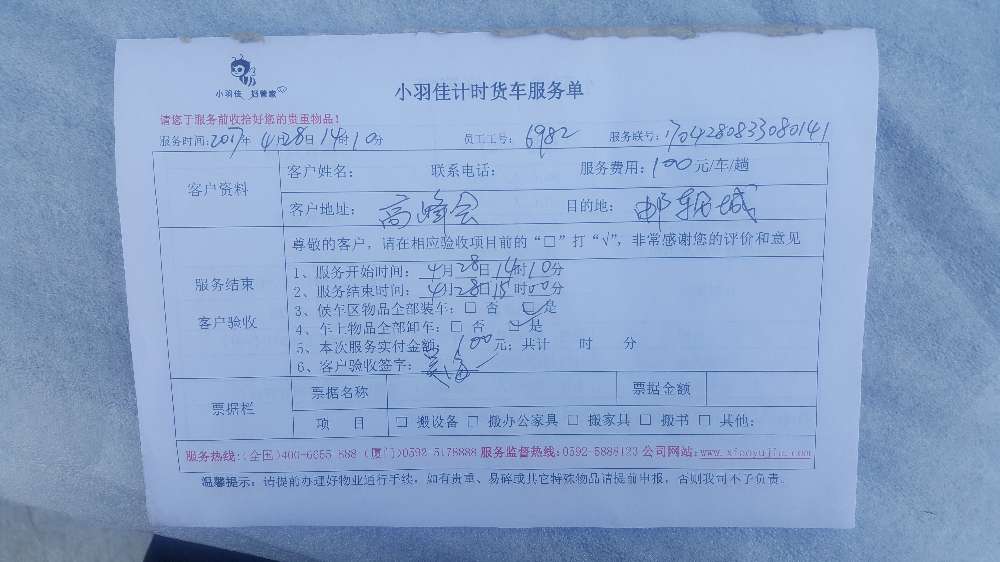 小羽佳 好管家
小羽佳计时货车服务单
请您于服务前收拾好您的贵重物品!
服务时间: 2017年 4月28日14时10分 员工工号: 6982 服务联号: 1704280833080141
客户资料
客户姓名: 联系电话: 服务费用: 100元/车/趟
客户地址: 高峰会 目的地: 邮轮城
服务结束
客户验收
尊敬的客户, 请在相应验收项目前的“□”打“√”, 非常感谢您的评价和意见
1、服务开始时间: 4月28日14时10分
2、服务结束时间: 4月28日15时00分
3、候车区物品全部装车: □ 否 □ 是
4、车上物品全部卸车: □ 否 □ 是
5、本次服务实付金额: 100元; 共计 时 分
6、客户验收签字:
票据栏
票据名称 票据金额
项 目 □ 搬设备 □ 搬办公家具 □ 搬家具 □ 搬书 □ 其他:
服务热线:(全国)400-6055 888 (厦门)0592 5178888 服务监督热线:0592-5888123 公司网站:www.xiaoyujia.com
温馨提示: 请提前办理好物业通行手续, 如有贵重、易碎或其它特殊物品请提前申报, 否则我司不予负责。